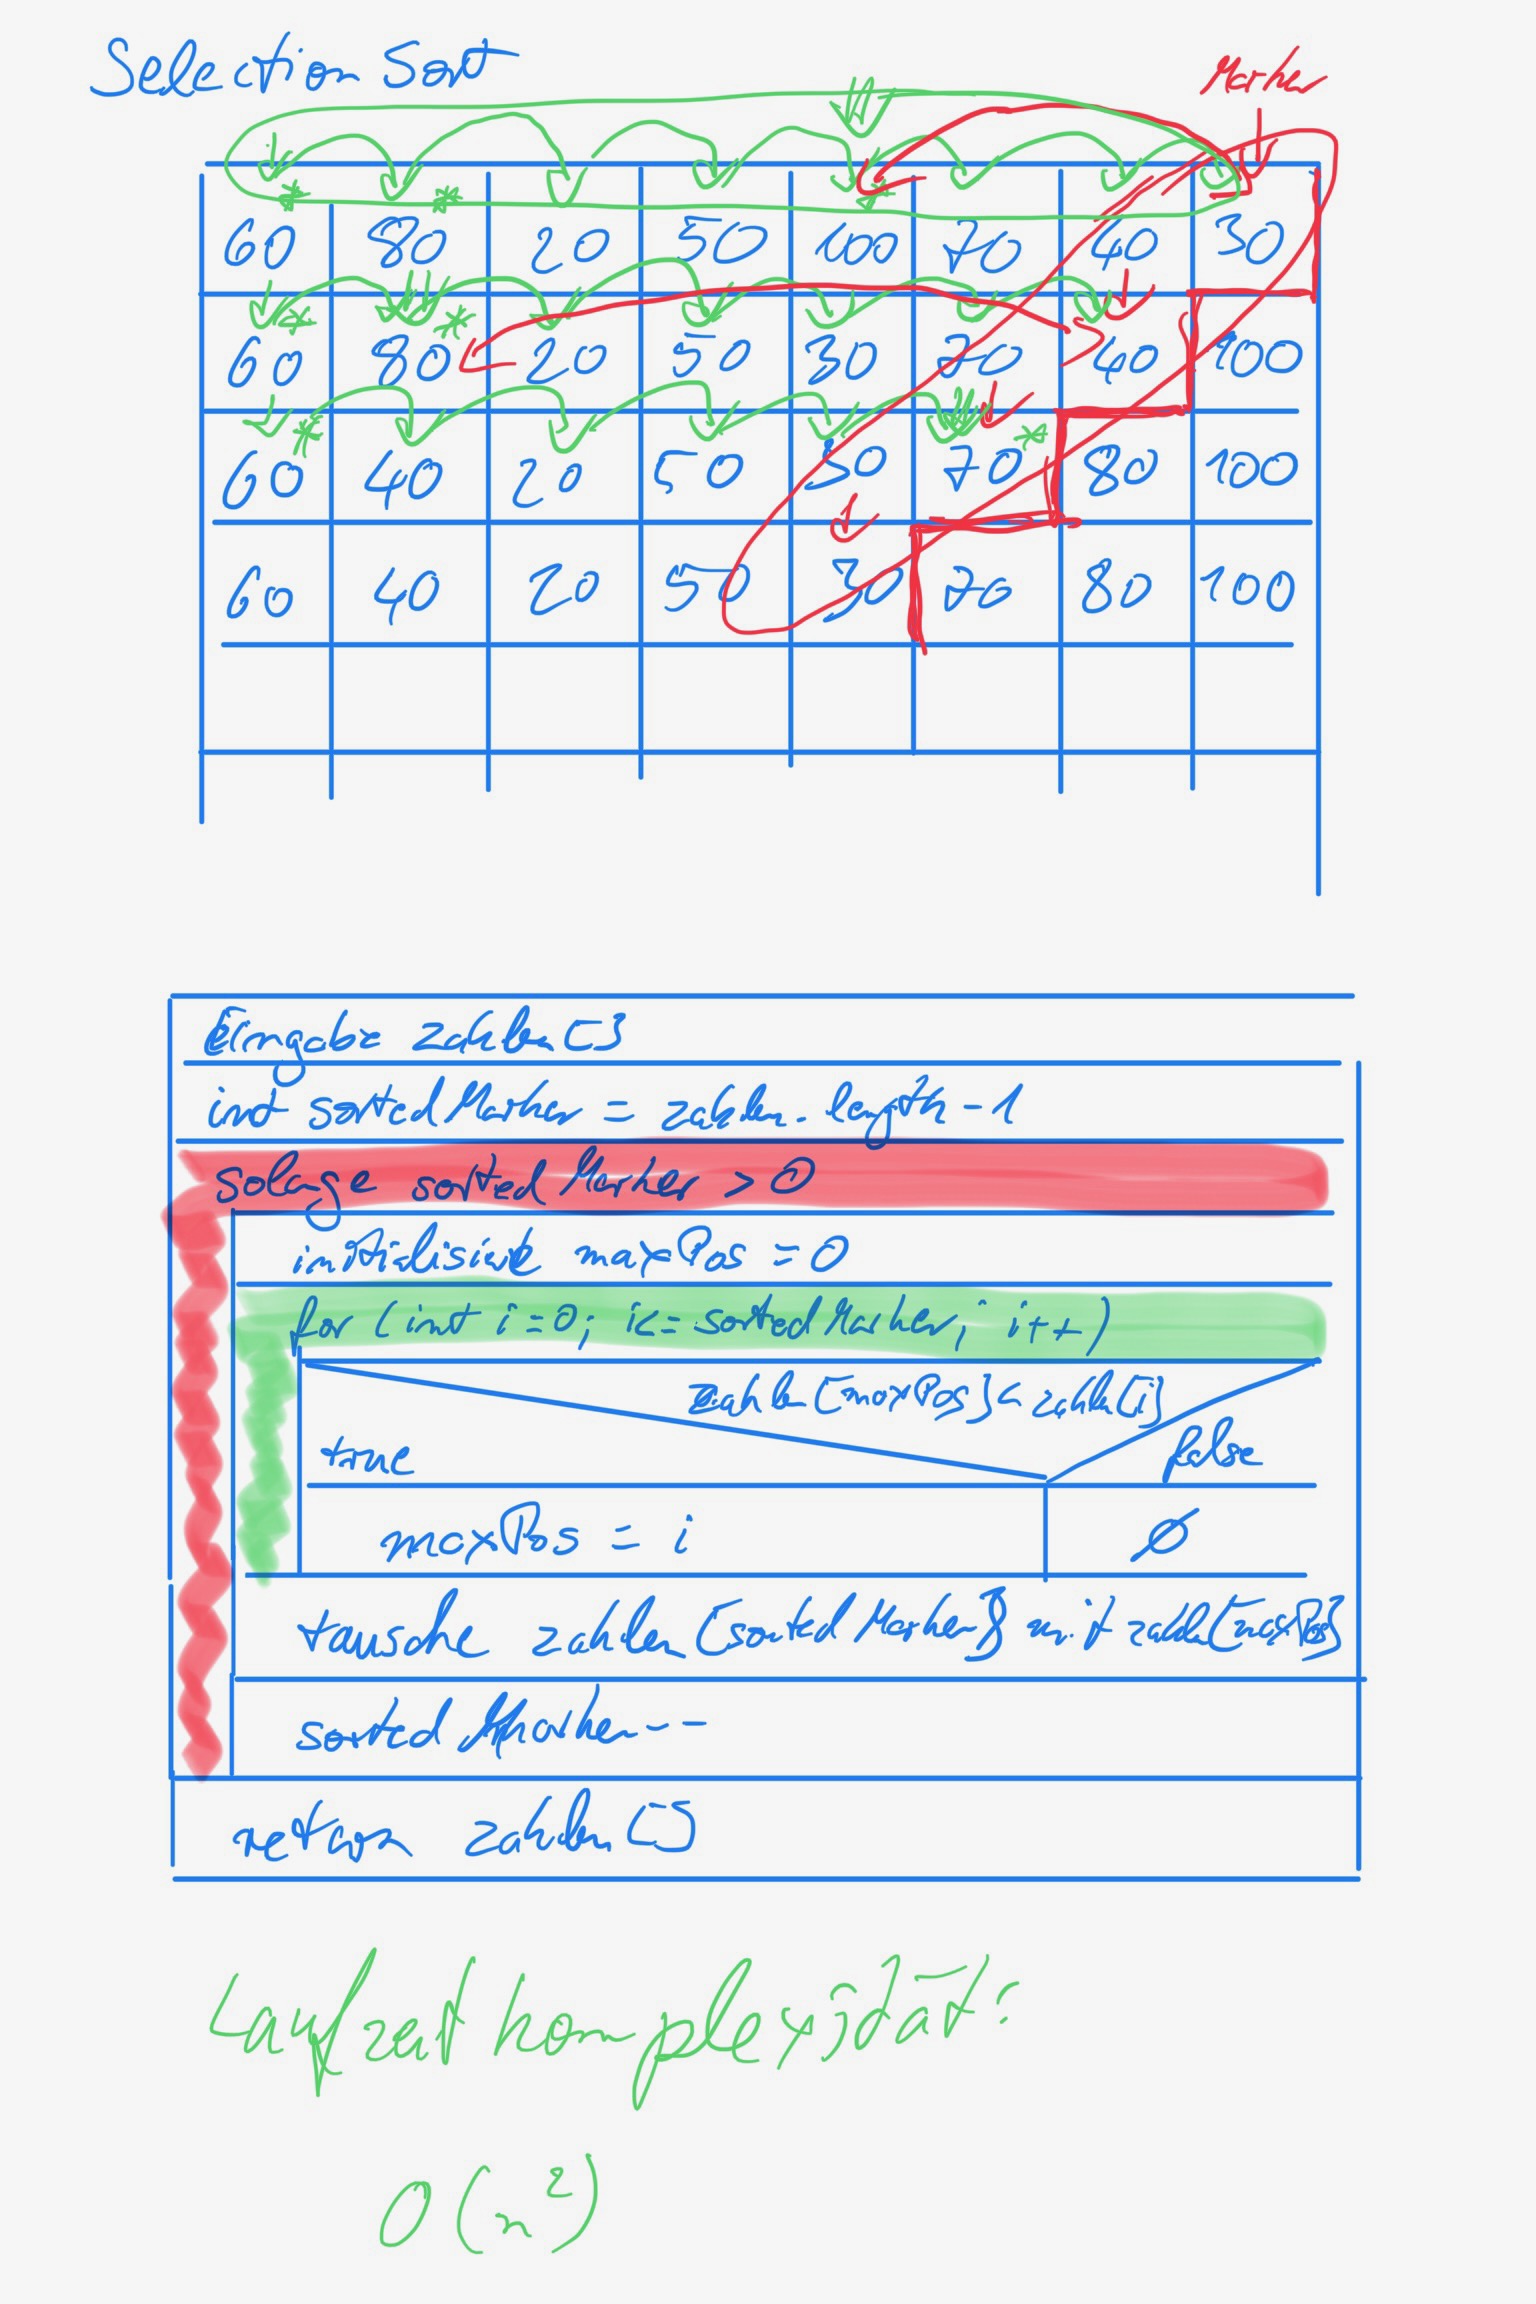 Selection Sort
Marker
60 80 20 50 100 70 40 30
60 80 20 50 30 70 40 100
60 40 20 50 30 70 80 100
60 40 20 50 30 70 80 100
Eingabe zahlen[]
int sortedMarker = zahlen.length-1
solange sortedMarker > 0
initialisiere maxPos = 0
for (int i=0; i<=sortedMarker; i++)
zahlen[maxPos] < zahlen[i]
true false
maxPos = i Ø
tausche zahlen[sortedMarker] mit zahlen[maxPos]
sortedMarker--
return zahlen[]
Laufzeitkomplexität:
O(n²)